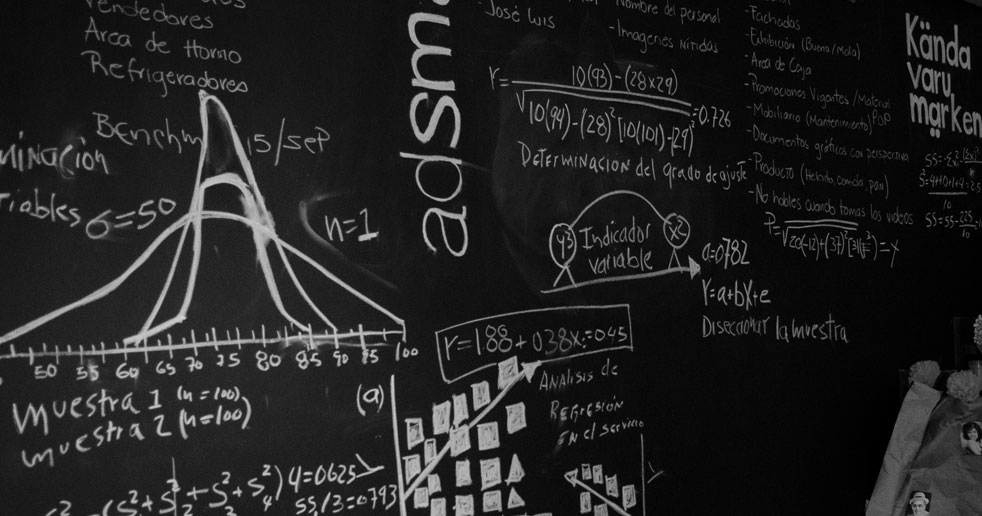 Vendedores
Area de Horno
Refrigeradores
Benchm
15/sep
minación
riables
σ=50
n=1
50 55 60 65 70 75 80 85 90 95 100
muestra 1 (n=100)
muestra 2 (n=100)
4=0625
55/3=0793
adsm
José Luis
Nombre del personal
-Imagenes Nitidas
r= 10(93)-(28x29)
√10(94)-(28)² [10(101)-29² =0.726
Determinacion del grado de ajuste
y3 Indicador variable x2
a=0782
Y=a+bX+e
Diseccionar la muestra
Y=1.88+038x:=045
(a)
Analisis de
Regresión
en el servicio
-Fachadas
-Exhibición (Buena/Mala)
-Area de Caja
-Promociones Vigentes/Material POP
-Mobiliario (Mantenimiento)
-Documentos gráficos con perspectiva
-Producto (Helado, comida, pan)
-No hables cuando tomas los videos
Kända
varu
märken